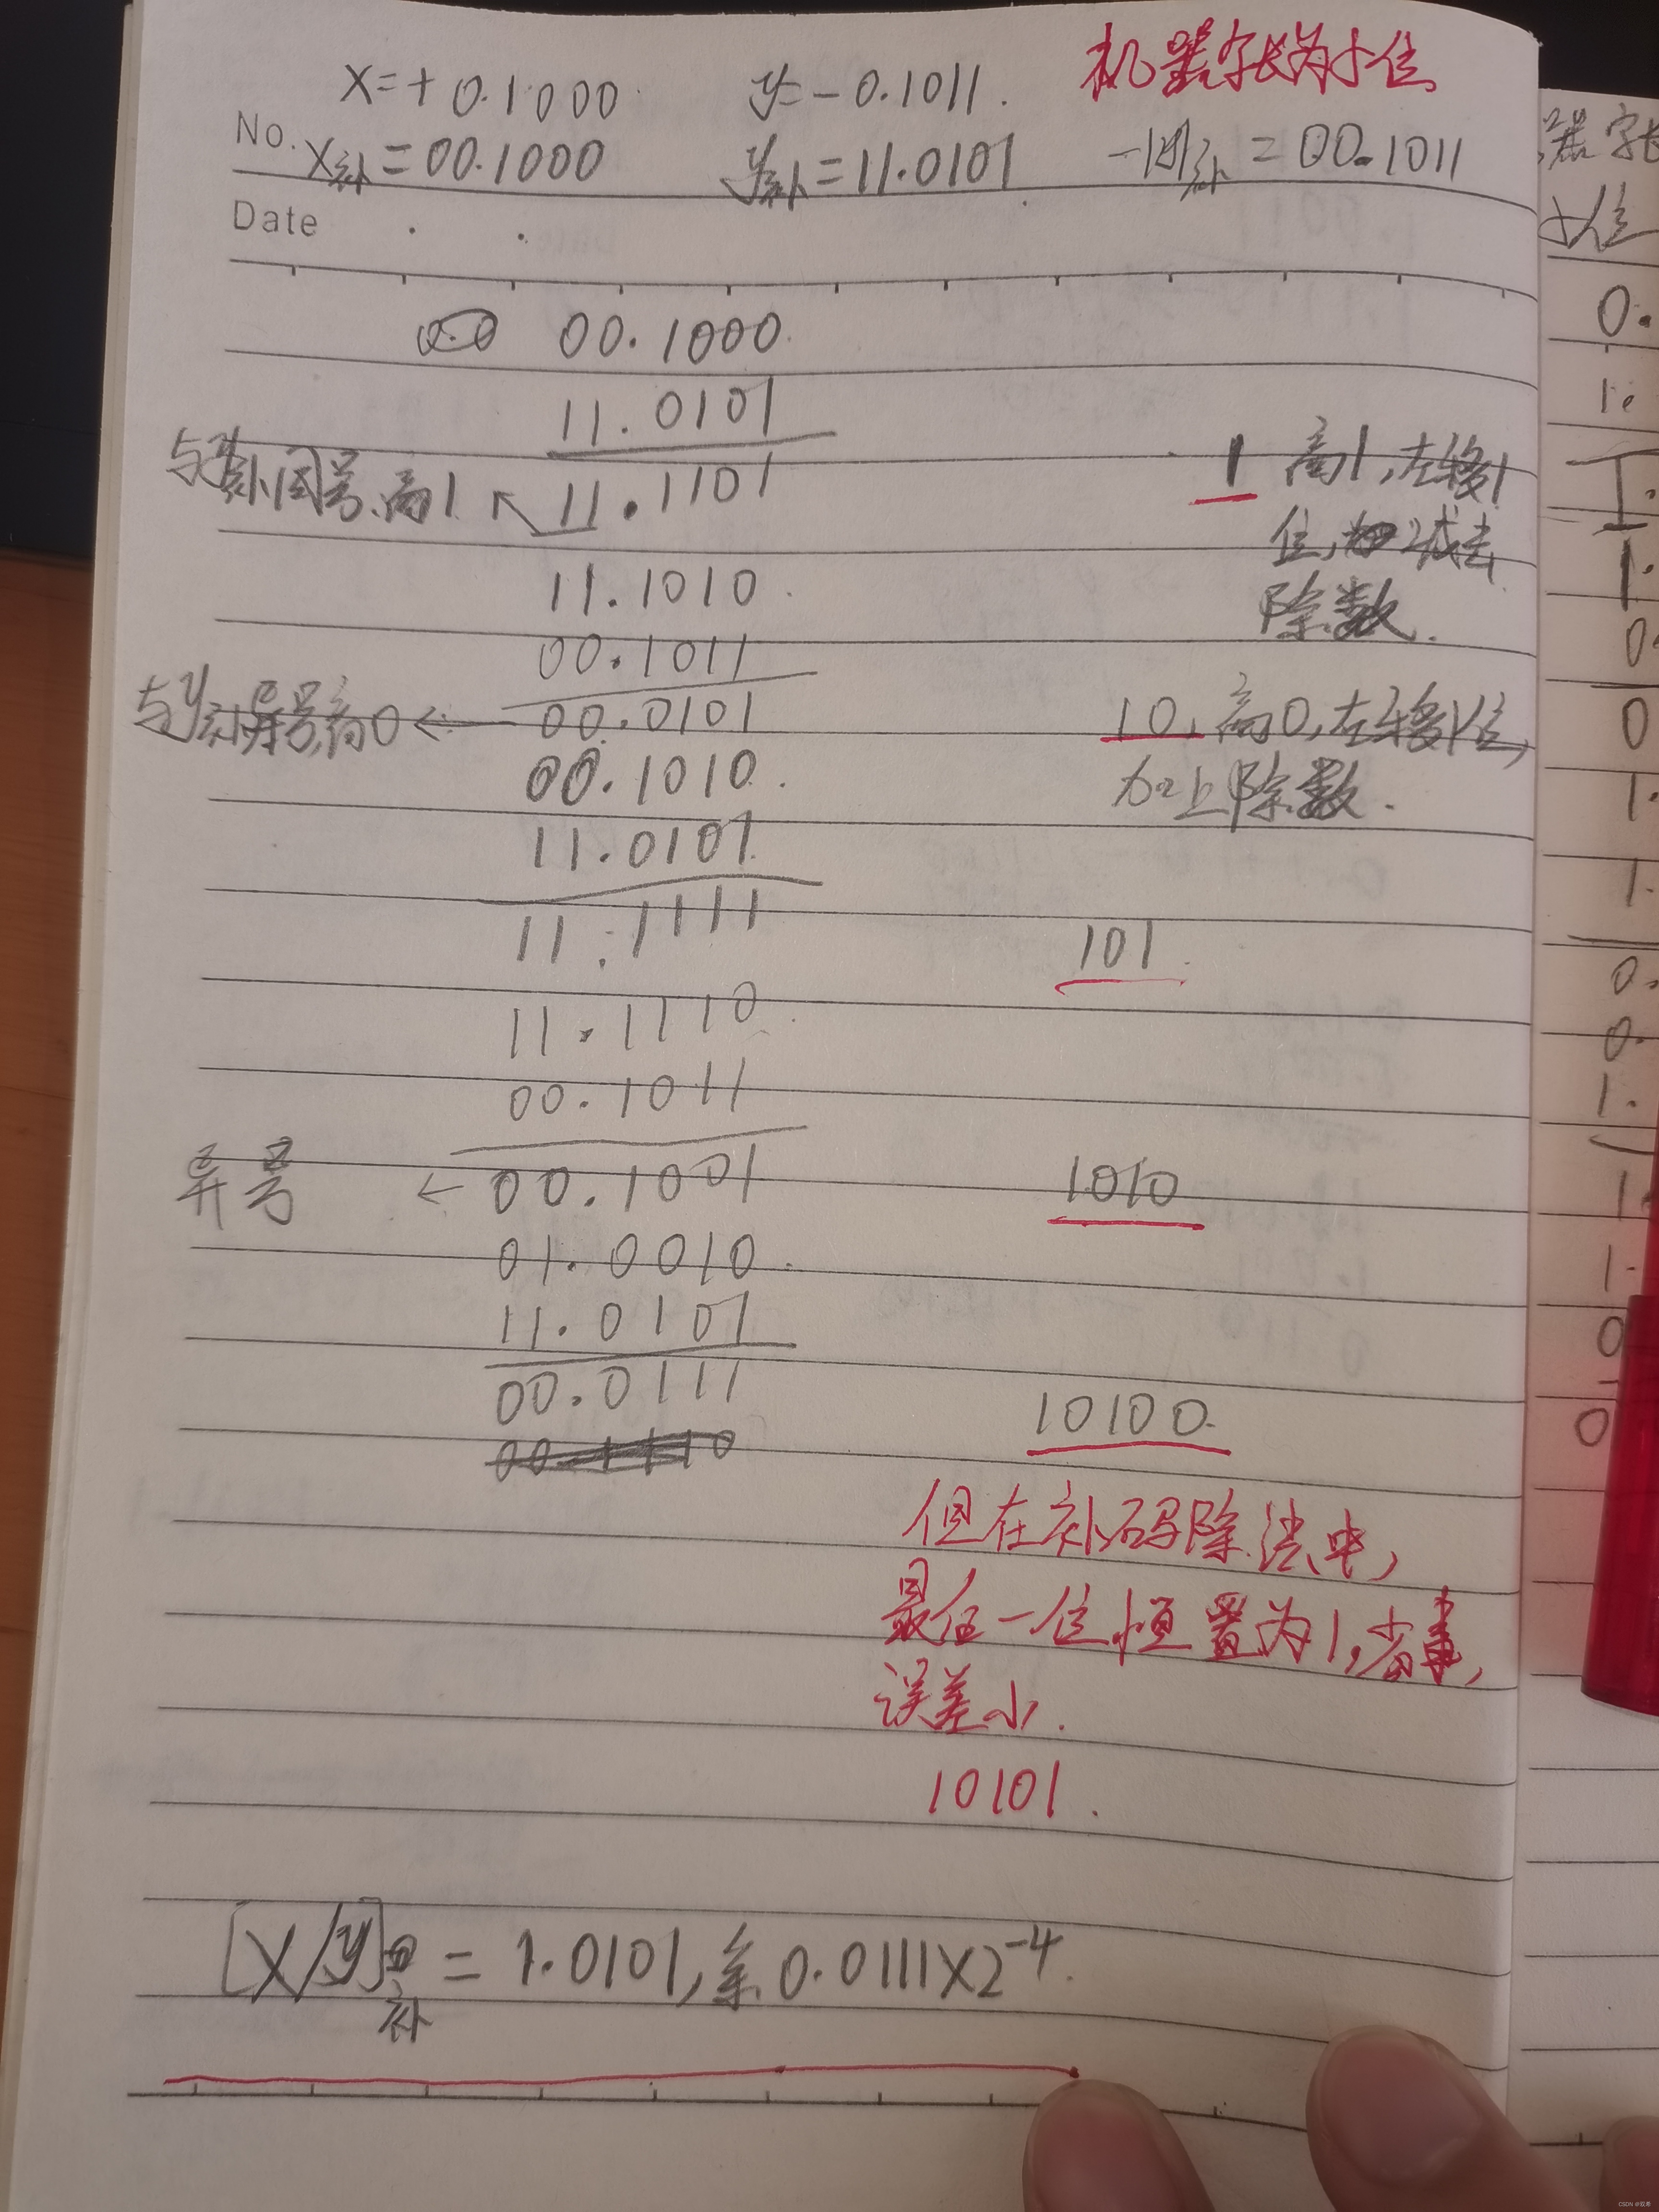 X=+0.1000 y=-0.1011. 机器字长为5位
No. X补=00.1000 y补=11.0101 -|y|补=00.1011
Date
00.1000
11.0101
与y补同号,商1 11.1101 1 商1,左移1
位,减去
11.1010 除数.
00.1011
与y补异号,商0 ← 00.0101 10. 商0,左移1位,
00.1010 加上除数.
11.0101
11.1111 101
11.1110
00.1011
异号 ← 00.1001 1010
01.0010
11.0101
00.0111 10100
但在补码除法中,
最后一位恒置为1,省事,
误差小.
10101.
[X/y]补=1.0101,余0.0111X2⁻⁴
器字长
0.
1.
1.
0
0
1.
1.
0.
0.
1.
1
1.
0
0
CSDN @权希